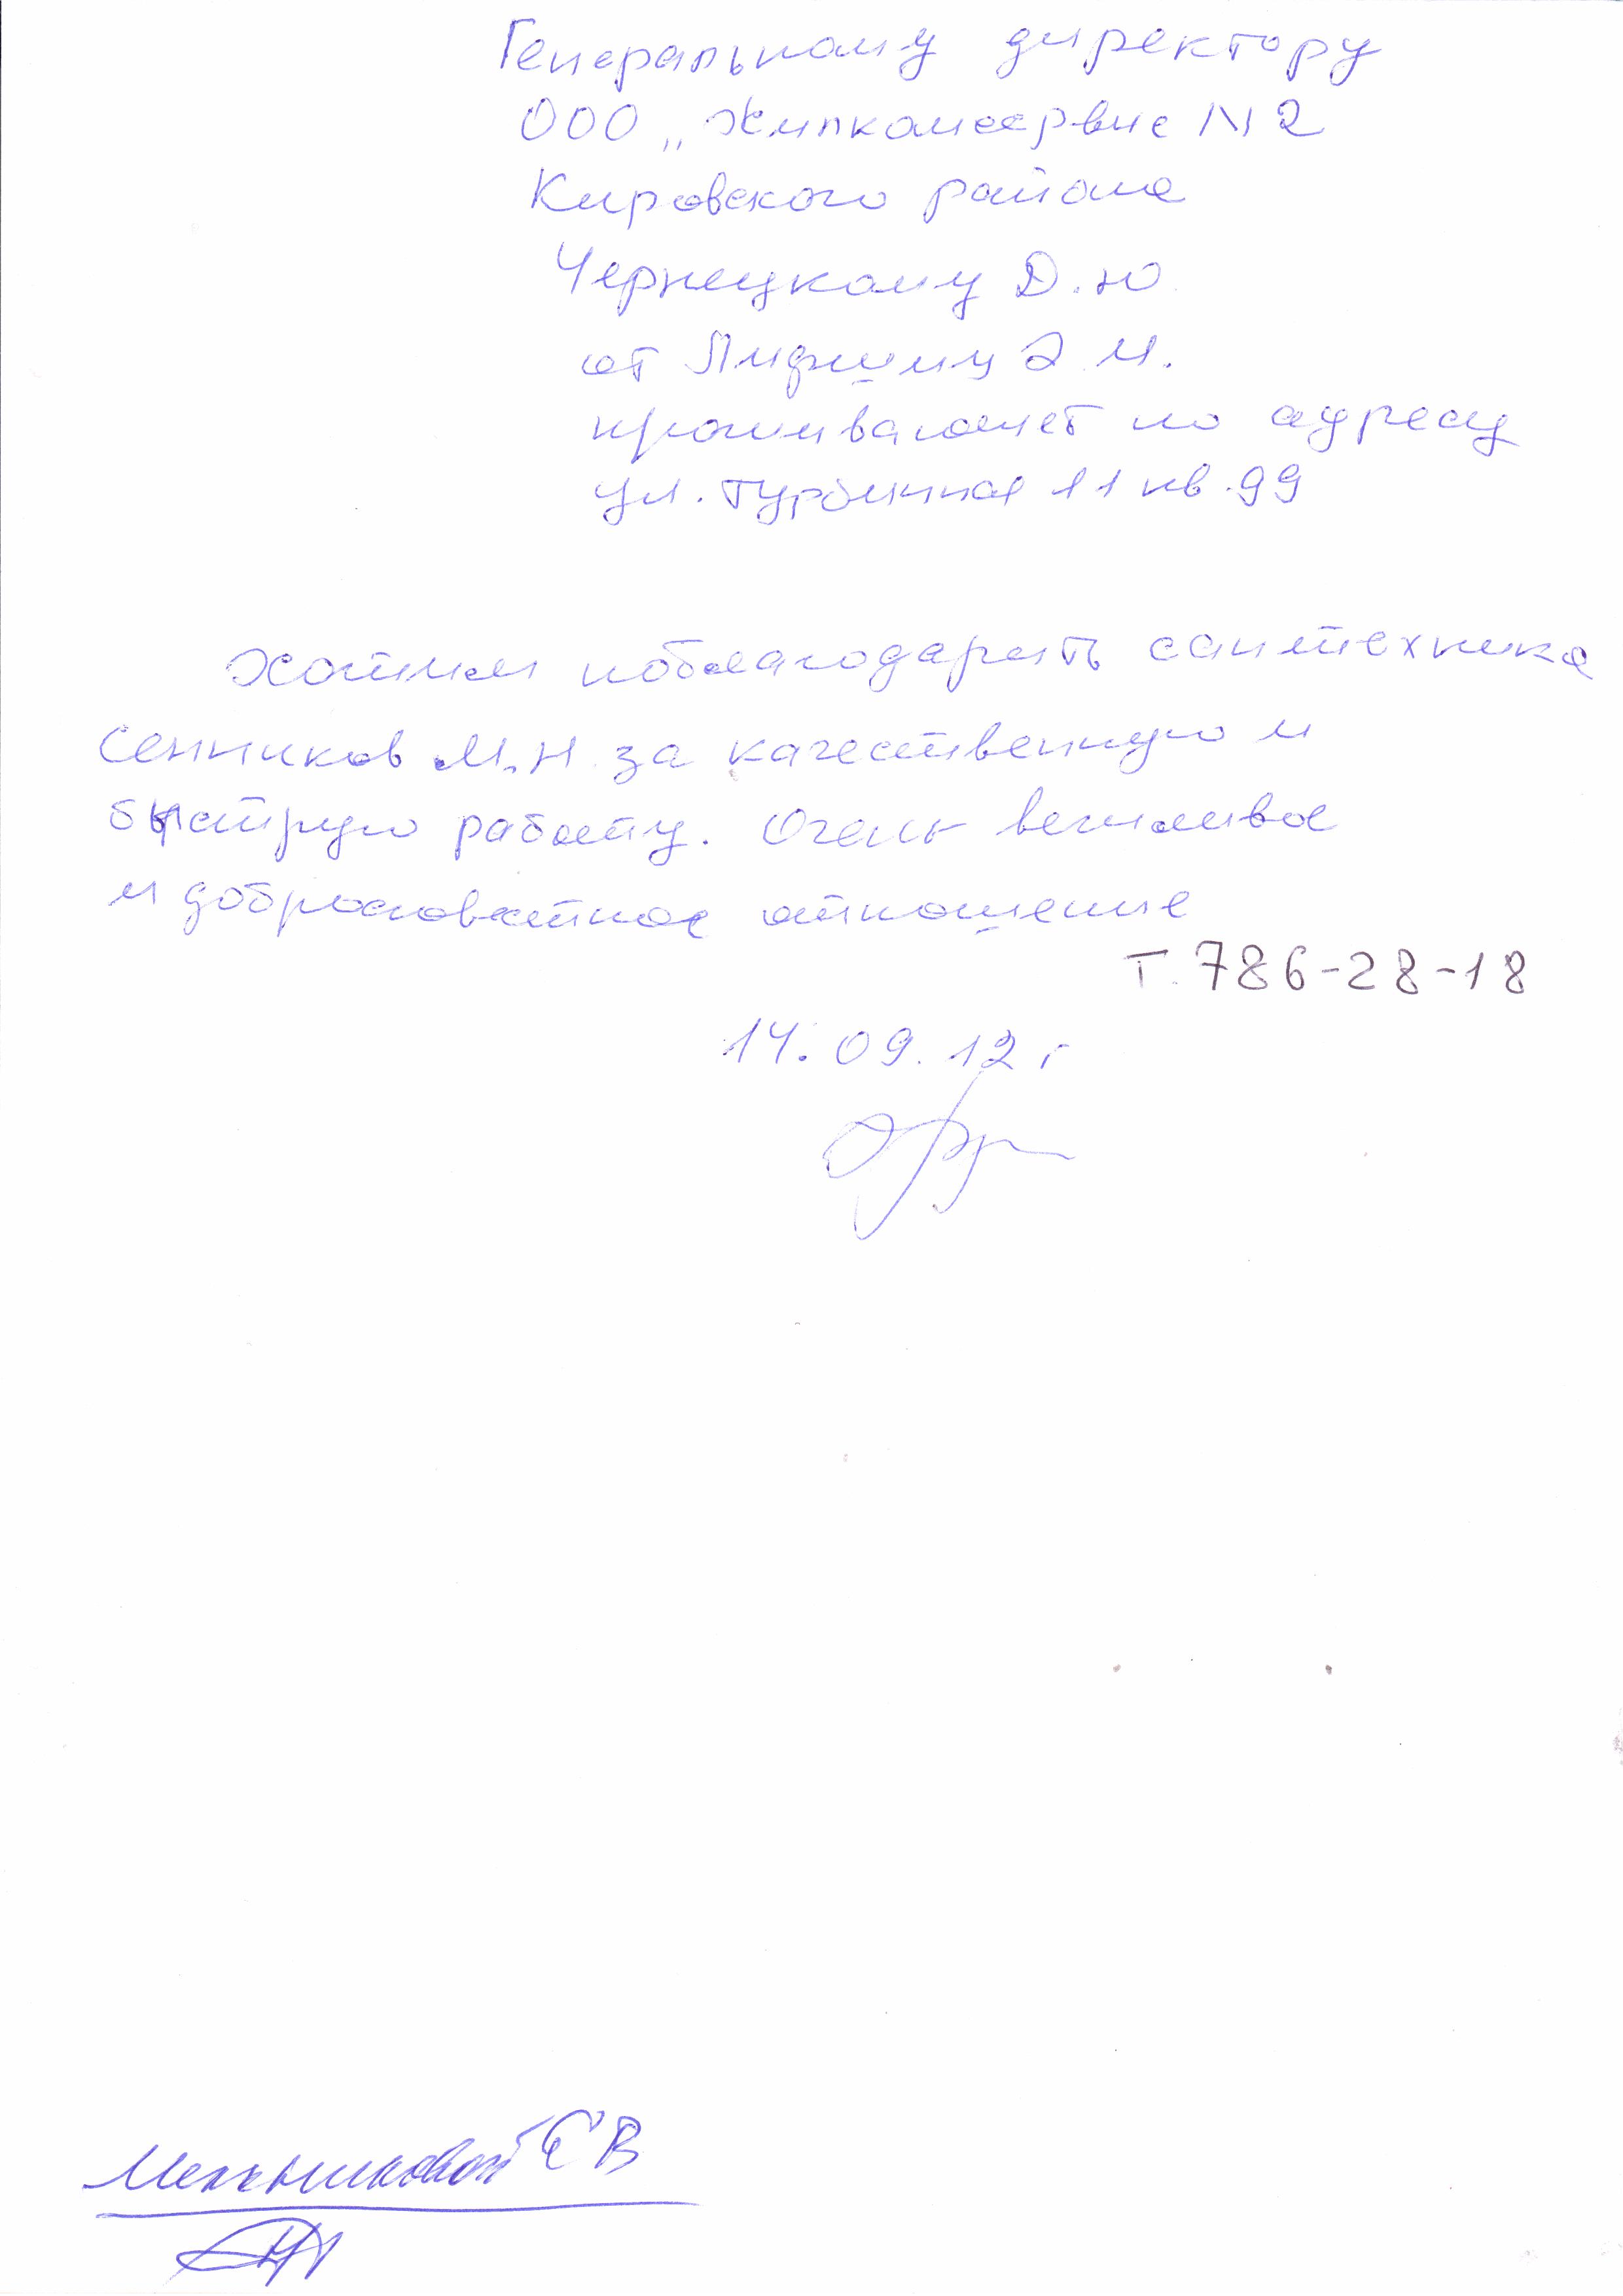 Генеральному директору
ООО „Жилкомсервис N 2
Кировского района
Чернецкому Д.Ю.
от Лифшиц Э М.
проживает по адресу
ул. Турбинная 11 кв. 99
Хотим поблагодарить сантехника
Сенников М.Н. за качественную и
быструю работу. Очень вежливое
и добросовестное отношение
т. 786-28-18
14.09.12 г
Мельниковой Е В